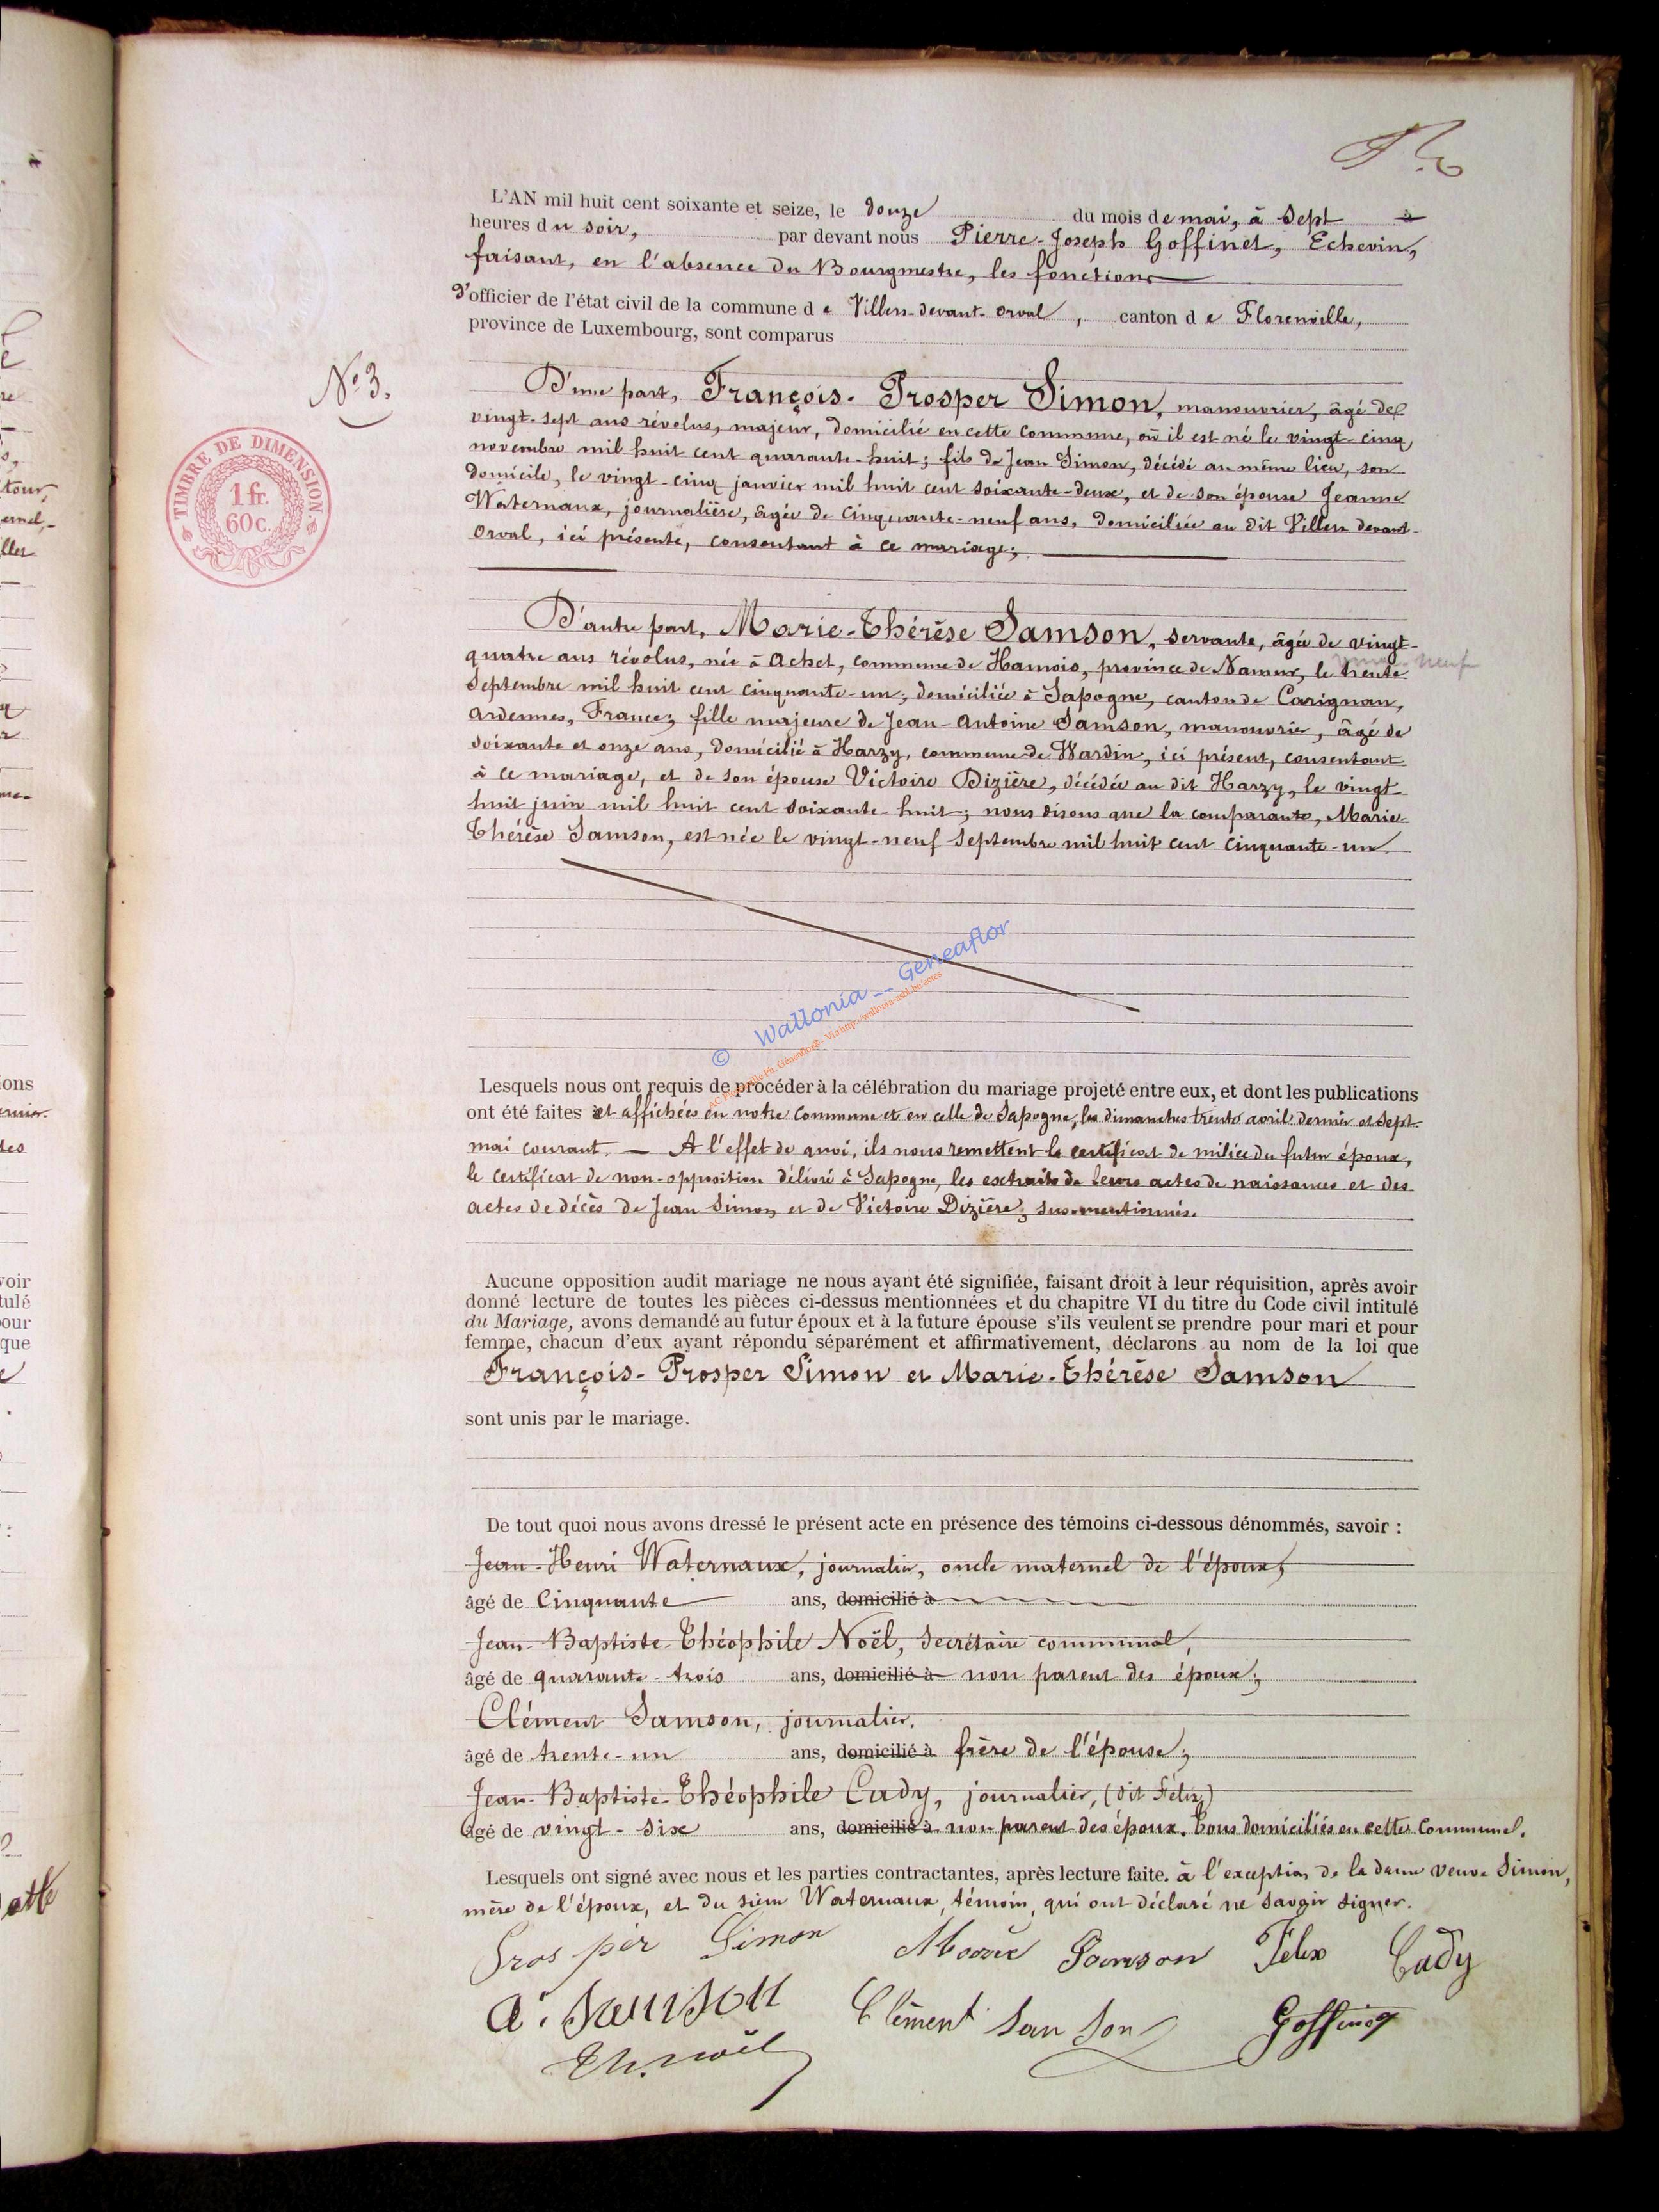 L'AN mil huit cent soixante et seize, le douze du mois de mai, à sept
heures du soir, par devant nous Pierre-Joseph Goffinet, Echevin,
faisant, en l'absence du Bourgmestre, les fonctions
d'officier de l'état civil de la commune de Villers-devant-Orval, canton de Florenville,
province de Luxembourg, sont comparus
N° 3.
TIMBRE DE DIMENSION
1 fr.
60 c.
D'une part, François-Prosper Simon, manouvrier, âgé de
vingt-sept ans révolus, majeur, domicilié en cette commune, où il est né le vingt-cinq
novembre mil huit cent quarante-huit; fils de Jean Simon, décédé au même lieu, son
domicile, le vingt-cinq janvier mil huit cent soixante-deux, et de son épouse Jeanne
Waternaux, journalière, âgée de cinquante-neuf ans, domiciliée au dit Villers devant-
Orval, ici présente, consentant à ce mariage;
D'autre part, Marie-Thérèse Samson, servante, âgée de vingt-
quatre ans révolus, née à Achet, commune de Hamois, province de Namur, le trente vingt-neuf
septembre mil huit cent cinquante-un; domiciliée à Sapogne, canton de Carignan,
Ardennes, France; fille majeure de Jean-Antoine Samson, manouvrier, âgé de
soixante et onze ans, domicilié à Harzy, commune de Wardin, ici présent, consentant
à ce mariage, et de son épouse Victoire Dizière, décédée au dit Harzy, le vingt-
huit juin mil huit cent soixante-huit; nous disons que la comparante, Marie-
Thérèse Samson, est née le vingt-neuf septembre mil huit cent cinquante-un.
© Wallonia __ Geneaflor
Lesquels nous ont requis de procéder à la célébration du mariage projeté entre eux, et dont les publications
ont été faites et affichées en notre commune et en celle de Sapogne, les dimanches trente avril dernier et sept
mai courant. — A l'effet de quoi, ils nous remettent le certificat de milice du futur époux,
le certificat de non-opposition délivré à Sapogne, les extraits de leurs actes de naissances et des
actes de décès de Jean Simon et de Victoire Dizière, sus-mentionnés.
Aucune opposition audit mariage ne nous ayant été signifiée, faisant droit à leur réquisition, après avoir
donné lecture de toutes les pièces ci-dessus mentionnées et du chapitre VI du titre du Code civil intitulé
du Mariage, avons demandé au futur époux et à la future épouse s'ils veulent se prendre pour mari et pour
femme, chacun d'eux ayant répondu séparément et affirmativement, déclarons au nom de la loi que
François-Prosper Simon et Marie-Thérèse Samson
sont unis par le mariage.
De tout quoi nous avons dressé le présent acte en présence des témoins ci-dessous dénommés, savoir :
Jean-Henri Waternaux, journalier, oncle maternel de l'époux,
âgé de cinquante ans, domicilié à
Jean-Baptiste-Théophile Noël, secrétaire communal,
âgé de quarante-trois ans, domicilié à non parent des époux;
Clément Samson, journalier,
âgé de trente-un ans, domicilié à frère de l'épouse;
Jean-Baptiste-Théophile Cady, journalier, (dit Félix)
âgé de vingt-six ans, domicilié à non parent des époux. Tous domiciliés en cette commune.
Lesquels ont signé avec nous et les parties contractantes, après lecture faite. à l'exception de la dame veuve Simon,
mère de l'époux, et du sieur Waternaux, témoin, qui ont déclaré ne savoir signer.
Prosper Simon Marie Samson Félix Cady
A. Samson Clément Sanson Goffinet
Th. Noël